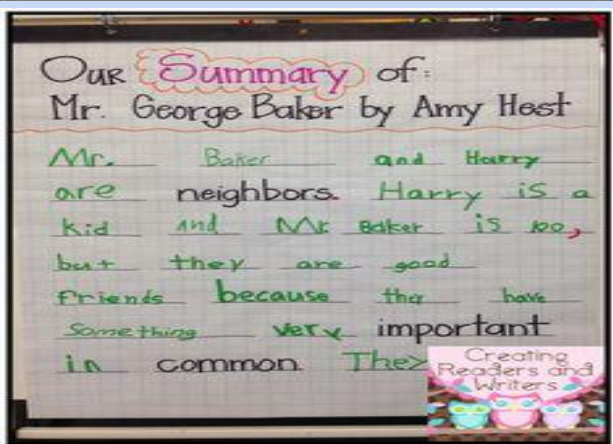 Our Summary of:
Mr. George Baker by Amy Hest
Mr. Baker and Harry
are neighbors. Harry is a
kid and Mr. Baker is 100,
but they are good
friends because they have
something very important
in common. They
Creating
Readers and
Writers